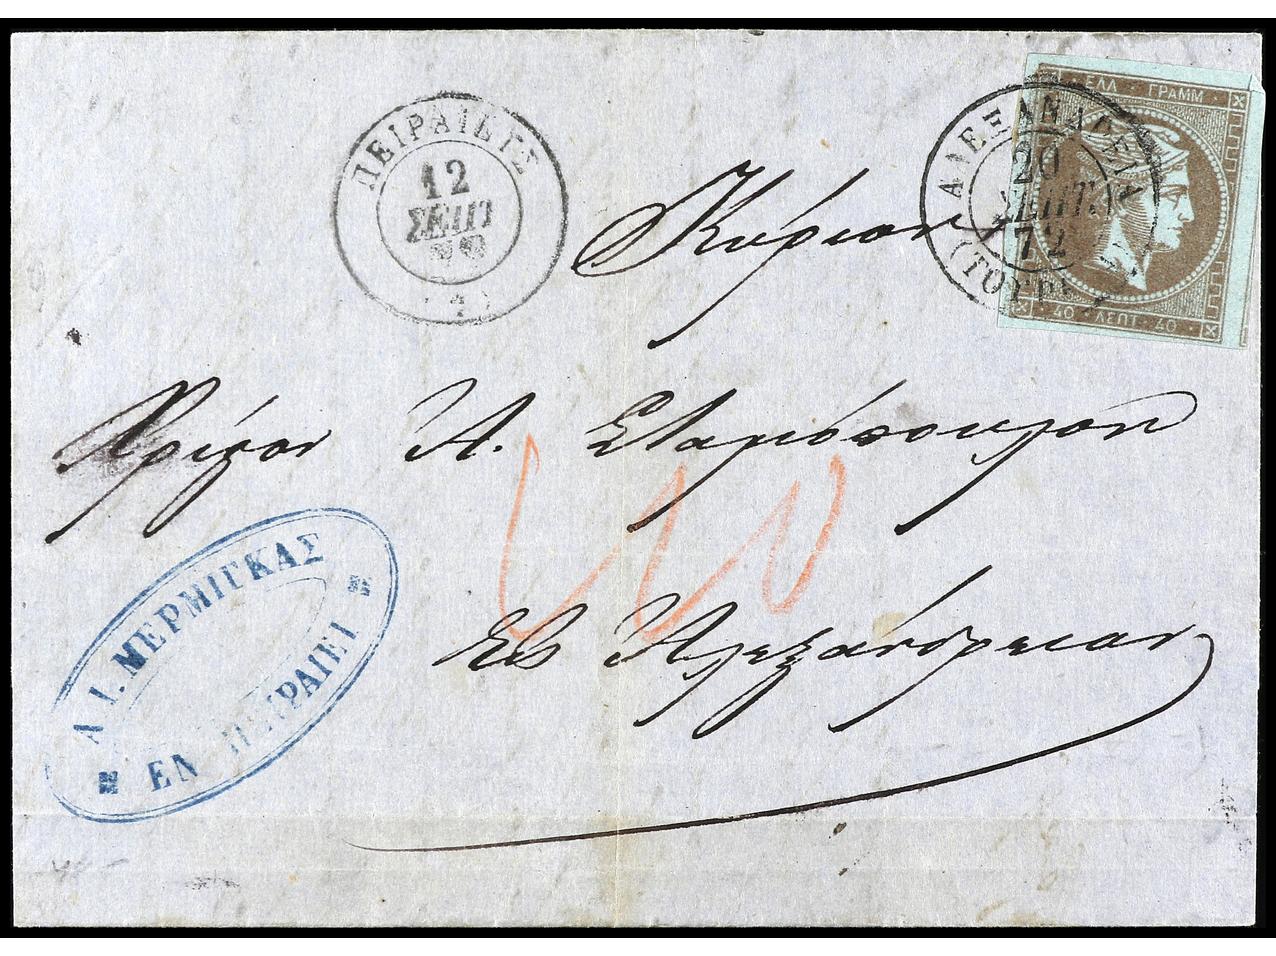 ΠΕΙΡΑΙΕΥΣ
12
ΣΕΠΤ
(4)
ΑΛΕΞΑΝΔΡΕΙΑ
20
ΣΕΠΤ.
72
(ΤΟΥΡΚ
ΕΛΛ ΓΡΑΜΜ
40 ΛΕΠΤ 40
Κύριον
Χρίστον Α. Σταμόπουλον
Εἰς Ἀλεξάνδρειαν
Λ. Ι. ΜΕΡΜΙΓΚΑΣ
ΕΝ ΠΕΙΡΑΙΕΙ